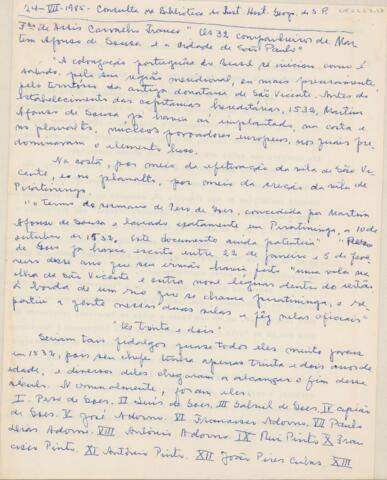 24-VII-1985 - Consulta na Biblioteca do Inst. Hist. Geogr. de S.P.
Fco de Assis Carvalho Franco "Os 32 companheiros de Mar
tim Afonso de Sousa e a cidade de São Paulo"
"A colonização portuguesa do Brasil se iniciou, como é
sabido, pela sua região meridional, ou mais precisamente,
pelo território da antiga donataria de São Vicente. Antes do
estabelecimento das capitanias hereditárias, 1532, Martim
Afonso de Sousa já havia aí implantado, na costa e
no planalto, nucleos povoadores europeus, nos quais pre
dominaram o elemento luso.
Na costa, por meio da efetivação da vila de São Vi
cente, e no planalto, por meio da ereção da vila de
Piratininga.
"o termo da sesmaria de Pero de Goes, concedida por Martim
Afonso de Sousa e lavrada exatamente em Piratininga, a 10 de
outubro de 1532, este documento ainda patenteia"
de Sousa já havia escrito entre 22 de janeiro e 5 de feve
reiro desse ano que seu irmão havia feito "uma vila na
ilha de São Vicente e outra nove leguas dentro do sertão
à borda de um rio que se chama Piratininga, e re
partiu a gente nessas duas vilas e fêz nelas oficiais"
"Os trinta e dois"
Seriam tais fidalgos quase todos eles muito jovens
em 1532, pois seu chefe tinha apenas trinta e dois anos de
idade, e diversos deles chegaram a alcançar o fim desse
século. Nominalmente, foram eles:
I. Pero de Goes. II Luis de Goes. III Gabriel de Goes. IV
de Goes. V José Adorno. VI Francisco Adorno. VII Paulo
Dias Adorno. VIII Antônio Adorno. IX Rui Pinto X Fran
cisco Pinto. XI Antônio Pinto. XII João Pires Cubas. XIII